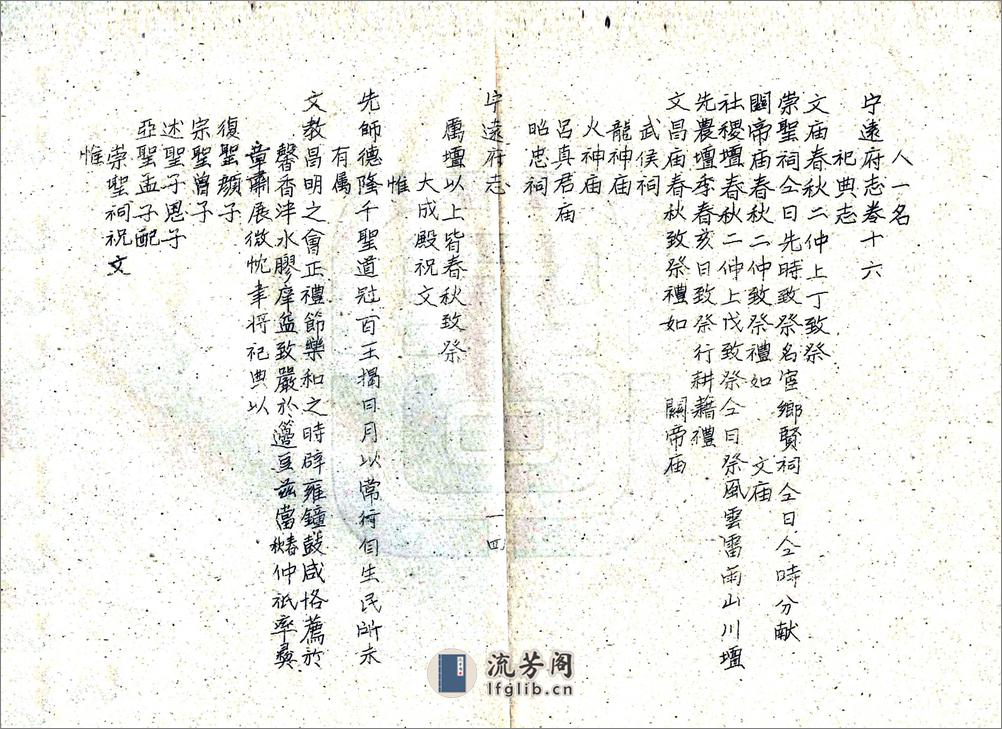 人一名
宁遠府志卷十六
祀典志
文庙春秋二仲上丁致祭
崇聖祠仝日先時致祭名宦鄉賢祠仝日仝時分献
関帝庙春秋二仲致祭禮如 文庙
社稷壇春秋二仲上戊致祭仝日祭風雲雷雨山川壇
先農壇季春亥日致祭行耕耤禮
文昌庙春秋致祭禮如 關帝庙
武侯祠
龍神庙
火神庙
吕真君庙
昭忠祠
宁遠府志
一四
厲壇以上皆春秋致祭
大成殿祝文
惟
先師德隆千聖道冠百王揭日月以常行自生民所未
有屬
文教昌明之會正禮節樂和之時辟雍鐘鼓咸恪薦於
馨香泮水膠庠益致嚴於籩豆茲當春秋仲祇率彝
章肅展微忱聿将祀典以
復聖顏子
宗聖曾子
述聖子恩子
亞聖孟子配
崇聖祠祝文
惟
流芳阁
lfglib.cn